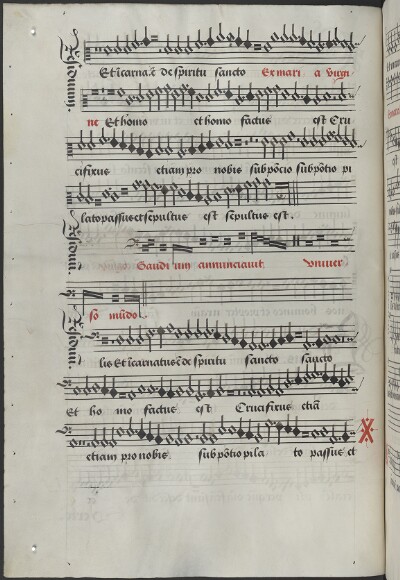 Et icarnat᷒ e de spiritu sancto Ex mari a virgi
ne Et homo et homo factus est Cru
cifixus etiam pro nobis sub pōcio sub pōtio pi
lato passus et sepultus est sepultus est .
Gaudium annunciavit univer
so mūdo
lis Et icarnatus e de spiritu sancto sancto
Et ho mo factus est Crucifixus etiā
etiam pro nobis sub pōtio pila to passus et